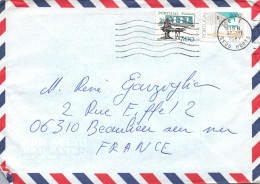 PORTUGAL
M. René Garzoglio
2 Rue Eiffel 2
06310 Beaulieu sur mer
FRANCE